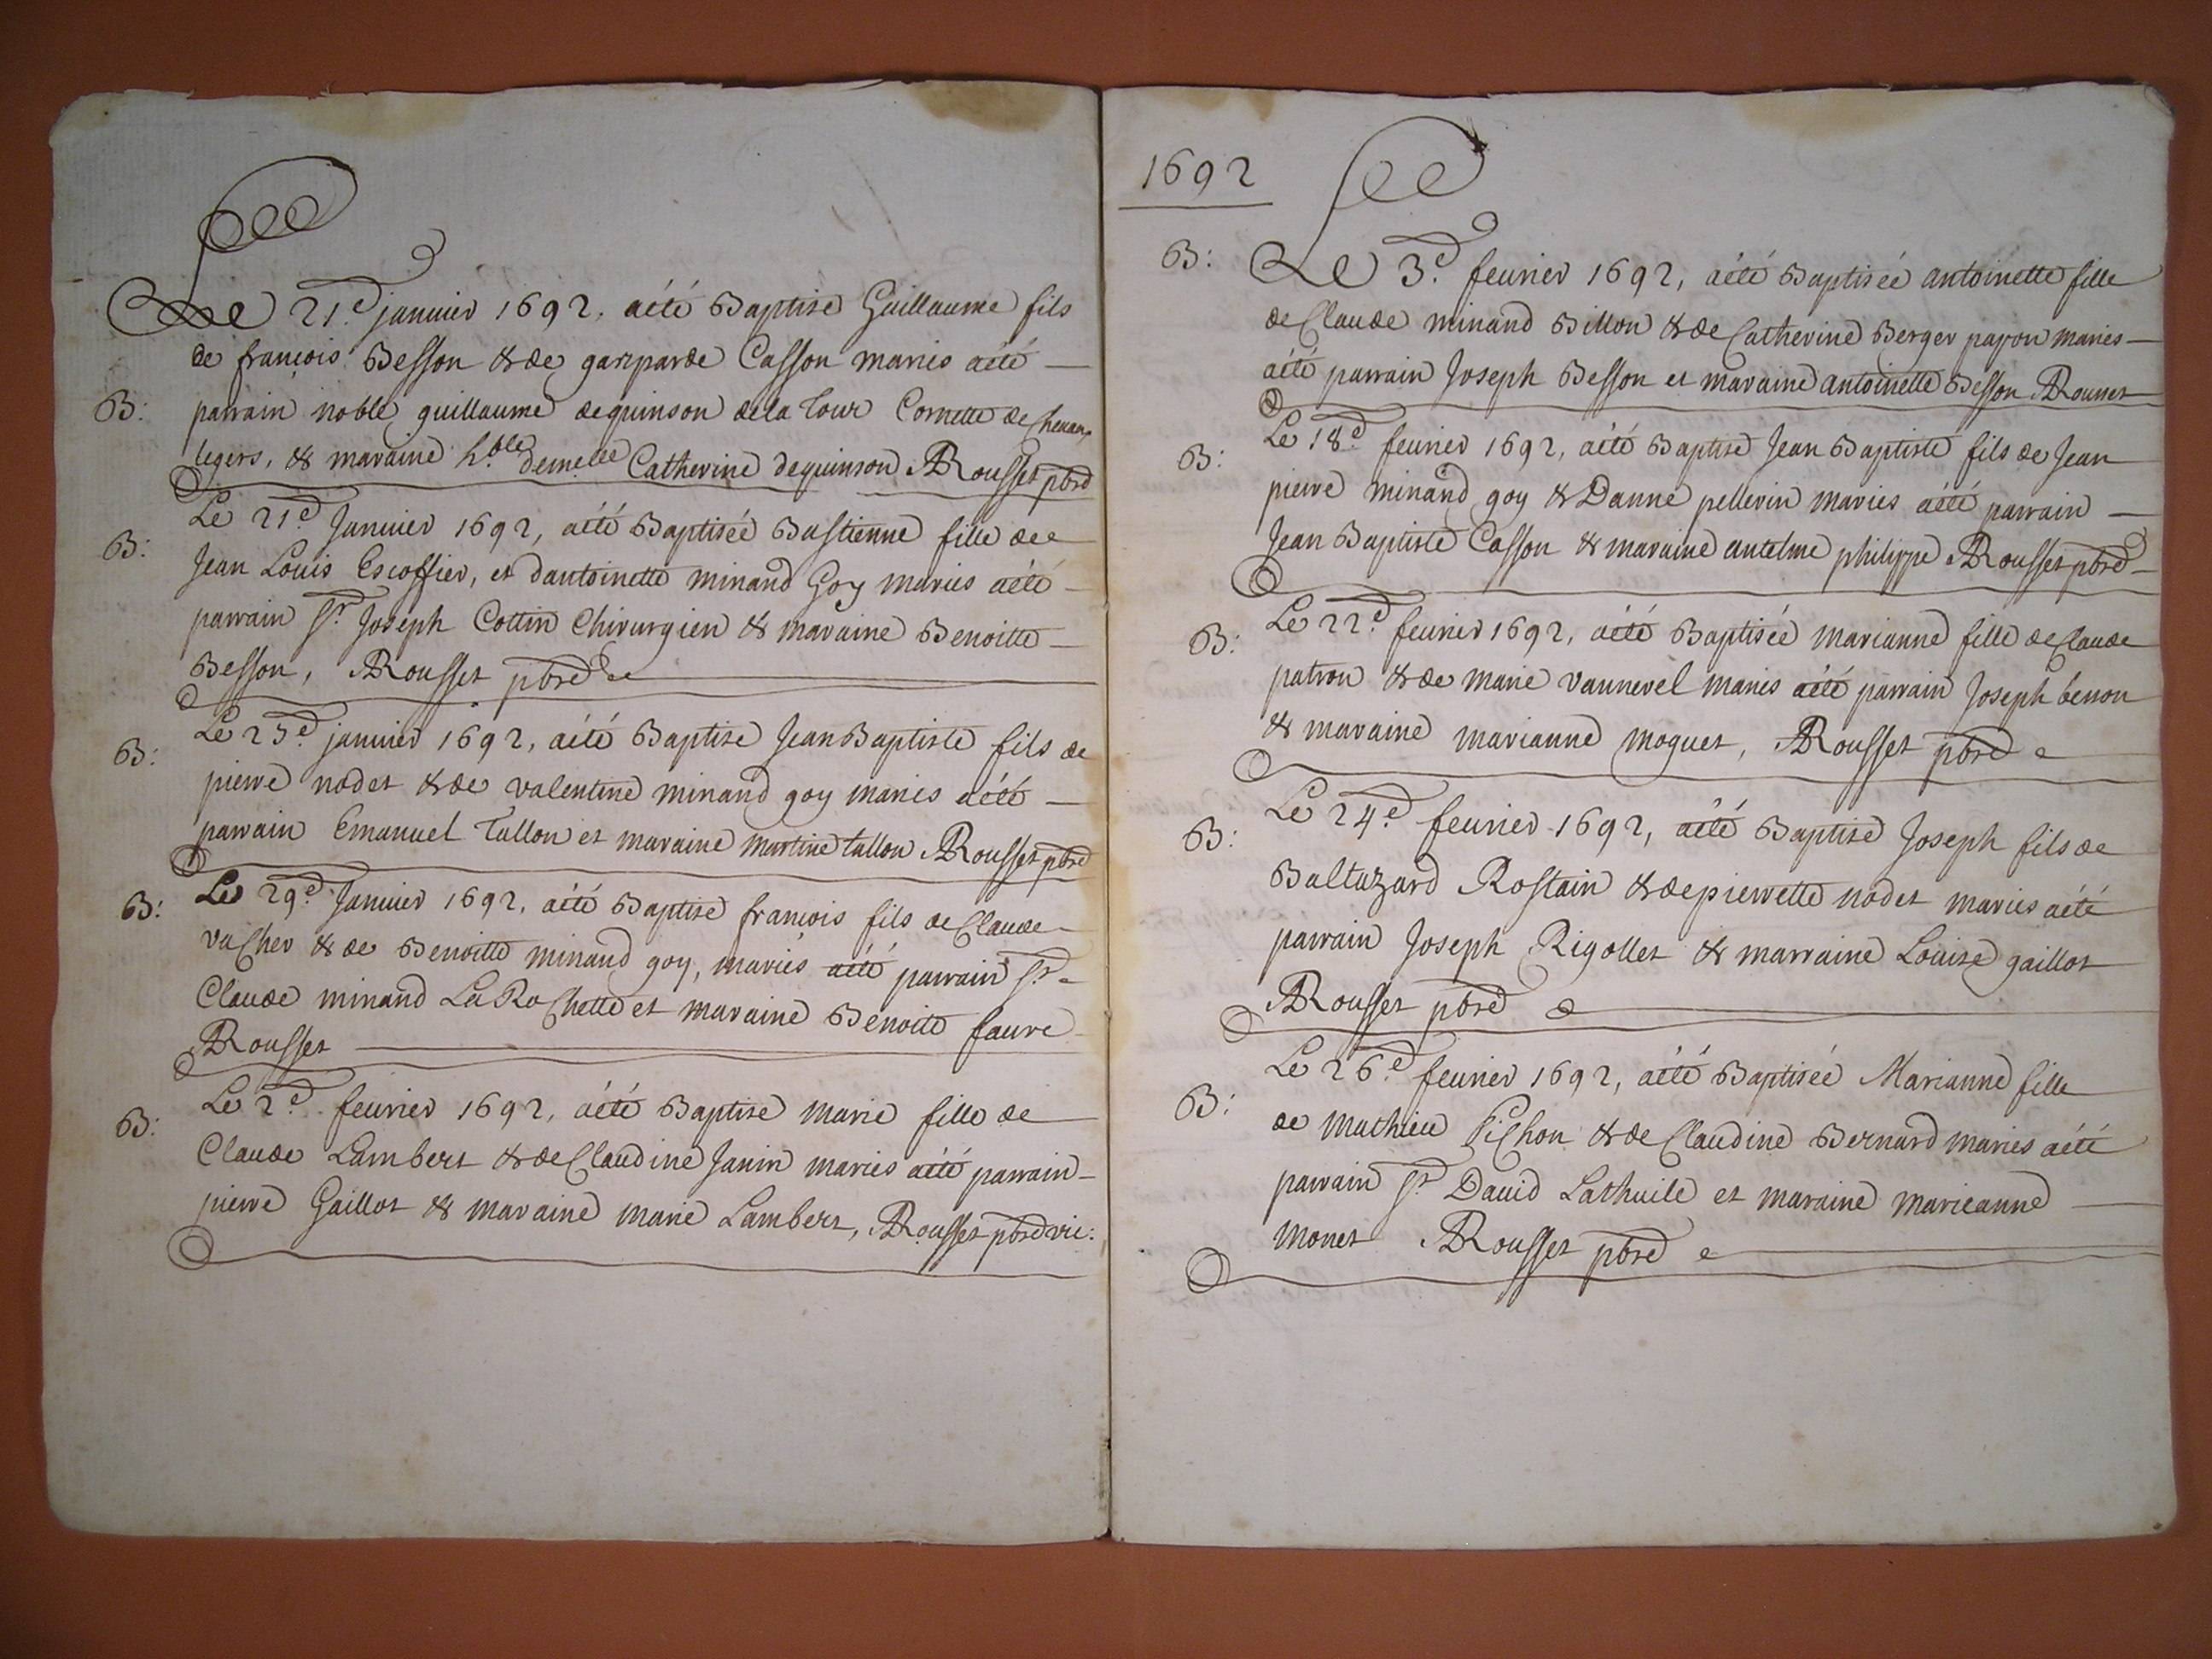 Le 21.e januier 1692, aété Baptisé Guillaume fils
de francois Besson & de gasparde Casson mariés aété
B: parrain noble guillaume dequinson dela tour Cornette de cheuau
legers, & maraine h.ble demelle Catherine dequinson ARousset pbre
Le 21.e Januier 1692, aété Baptisée Bastienne fille de
B: Jean Louis Escoffier, et dantoinette minand Goy mariés aété
parrain sr. Joseph Cottin Chirurgien & maraine Benoitte
Besson, ARousset pbre
Le 23.e januier 1692, aété Baptisé Jean Baptiste fils de
B: pierre nodet & de valentine minand goy mariés aété
parrain Emanuel tallon et maraine martine tallon ARousset pbre
B: Le 29.e Januier 1692, aété Baptisé francois fils de Claude
vacher & de Benoitte minand goy, mariés aété parrain sr.
Claude minand La Rochette et maraine Benoite faure
ARousset
Le 2.e feurier 1692, aété Baptisé marie fille de
B: Claude Lambert & de Claudine Janin mariés aété parrain
pierre Gaillot & maraine marie Lambert, ARousset pbre vic:
1692
B: Le 3.e feurier 1692, aété Baptisée antoinette fille
de Claude minand Billon & de Catherine Berger papon mariés
aété parrain Joseph Besson et maraine antoinette Besson ARousset
B: Le 18.e feurier 1692, aété Baptisé Jean Baptiste fils de Jean
pierre minand goy & Danne pellerin mariés aété parrain
Jean Baptiste Casson & maraine antelme philippe ARousset pbre
B: Le 22.e feurier 1692, aété Baptisée marianne fille de Claude
patron & de marie vannerel mariés aété parrain Joseph benon
& maraine marianne moguet, ARousset pbre
Le 24.e feurier 1692, aété Baptisé Joseph fils de
B: Baltazard Rostain & de pierrette nodet mariés aété
parrain Joseph Rigollet & marraine Louise gaillot
ARousset pbre
Le 26.e feurier 1692, aété Baptisée Marianne fille
B: de mathieu Pichon & de Claudine Bernard mariés aété
parrain sr. Dauid Lathuile et maraine marieanne
monet ARousset pbre